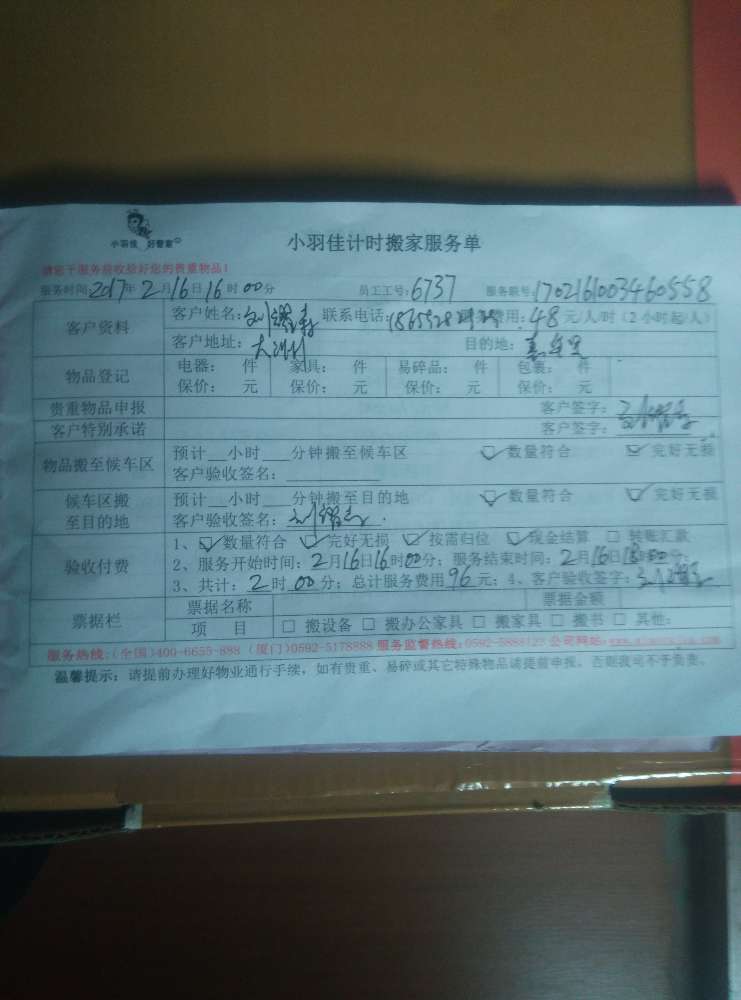 小羽佳 好管家
小羽佳计时搬家服务单
请您于服务前收验好您的贵重物品!
服务时间:2017年2月16日16时00分 员工工号:6737 服务账号:1702161003460558
客户资料 客户姓名: 联系电话: 服务费用:48元/人/时(2小时起/人)
客户地址: 目的地:
物品登记 电器: 件 家具: 件 易碎品: 件 包装: 件
保价: 元 保价: 元 保价: 元 保价: 元
贵重物品申报 客户签字:
客户特别承诺 客户签字:
物品搬至候车区 预计__小时___分钟搬至候车区 ☑数量符合 ☑完好无损
客户验收签名:
候车区搬至目的地 预计__小时___分钟搬至目的地 ☑数量符合 ☑完好无损
客户验收签名:
验收付费 1、☑数量符合 ☑完好无损 ☑按需归位 ☑现金结算 □转账汇款
2、服务开始时间:2月16日16时00分;服务结束时间:2月16日18时00分;
3、共计:2时00分;总计服务费用96元;4、客户验收签字:
票据栏 票据名称 票据金额
项 目 □搬设备 □搬办公家具 □搬家具 □搬书 □其他:
服务热线:(全国)400-6655-888 (厦门)0592-5178888 服务监督热线:0592-5888123 公司网站:
温馨提示:请提前办理好物业通行手续,如有贵重、易碎或其它特殊物品请提前申报,否则我司不予负责。